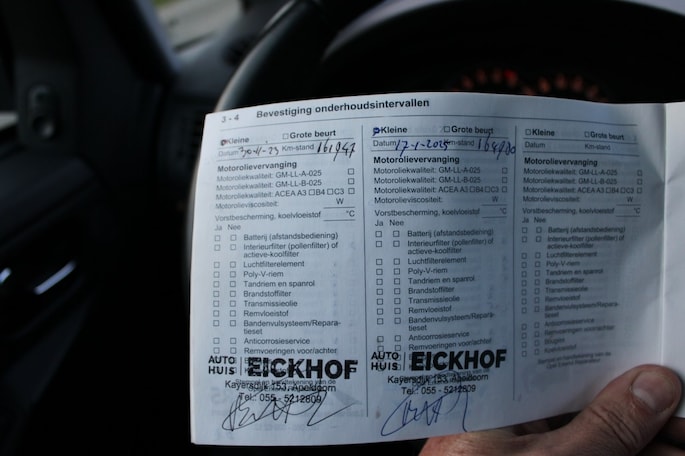 3 - 4 Bevestiging onderhoudsintervallen
Kleine Grote beurt
Datum 30-11-23 Km-stand 161947
Motorolievervanging
Motoroliekwaliteit: GM-LL-A-025
Motoroliekwaliteit: GM-LL-B-025
Motoroliekwaliteit: ACEA A3 B4 C3
Motorolieviscositeit: W
Vorstbescherming, koelvloeistof °C
Ja Nee
Batterij (afstandsbediening)
Interieurfilter (pollenfilter) of
actieve-koolfilter
Luchtfilterelement
Poly-V-riem
Tandriem en spanrol
Brandstoffilter
Transmissieolie
Remvloeistof
Bandenvulsysteem/Repara-
tieset
Anticorrosieservice
Remvoeringen voor/achter
AUTO
HUIS EICKHOF
Kayersdijk 153, Apeldoorn
Tel.: 055 - 5212809
Kleine Grote beurt
Datum 17-1-2025 Km-stand
Motorolievervanging
Motoroliekwaliteit: GM-LL-A-025
Motoroliekwaliteit: GM-LL-B-025
Motoroliekwaliteit: ACEA A3 B4 C3
Motorolieviscositeit: W
Vorstbescherming, koelvloeistof °C
Ja Nee
Batterij (afstandsbediening)
Interieurfilter (pollenfilter) of
actieve-koolfilter
Luchtfilterelement
Poly-V-riem
Tandriem en spanrol
Brandstoffilter
Transmissieolie
Remvloeistof
Bandenvulsysteem/Repara-
tieset
Anticorrosieservice
Remvoeringen voor/achter
AUTO
HUIS EICKHOF
Kayersdijk 153, Apeldoorn
Tel.: 055 - 5212809
Kleine Grote beurt
Datum Km-stand
Motorolievervanging
Motoroliekwaliteit: GM-LL-A-025
Motoroliekwaliteit: GM-LL-B-025
Motoroliekwaliteit: ACEA A3 B4 C3
Motorolieviscositeit: W
Vorstbescherming, koelvloeistof °C
Ja Nee
Batterij (afstandsbediening)
Interieurfilter (pollenfilter) of
actieve-koolfilter
Luchtfilterelement
Poly-V-riem
Tandriem en spanrol
Brandstoffilter
Transmissieolie
Remvloeistof
Bandenvulsysteem/Repara-
tieset
Anticorrosieservice
Remvoeringen voor/achter